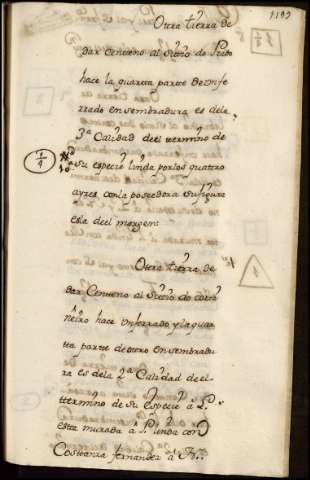 Otra tierra de
dar Centeno al Sitio do Prado
hace la quarta parte de un fe
rrado en sembradura es de la
3ª Calidad de el termino de
su especie linda por los quatro
ayres con la poseedora su figura
es la de el margen
Otra tierra de
dar Centeno al Sitio do
hace un ferrado y la quar
ta parte de otro en sembradu
ra es de la 2ª Calidad de el
termino de su especie a L.
esta murada a P. linda con
Costanza fernandez a N.